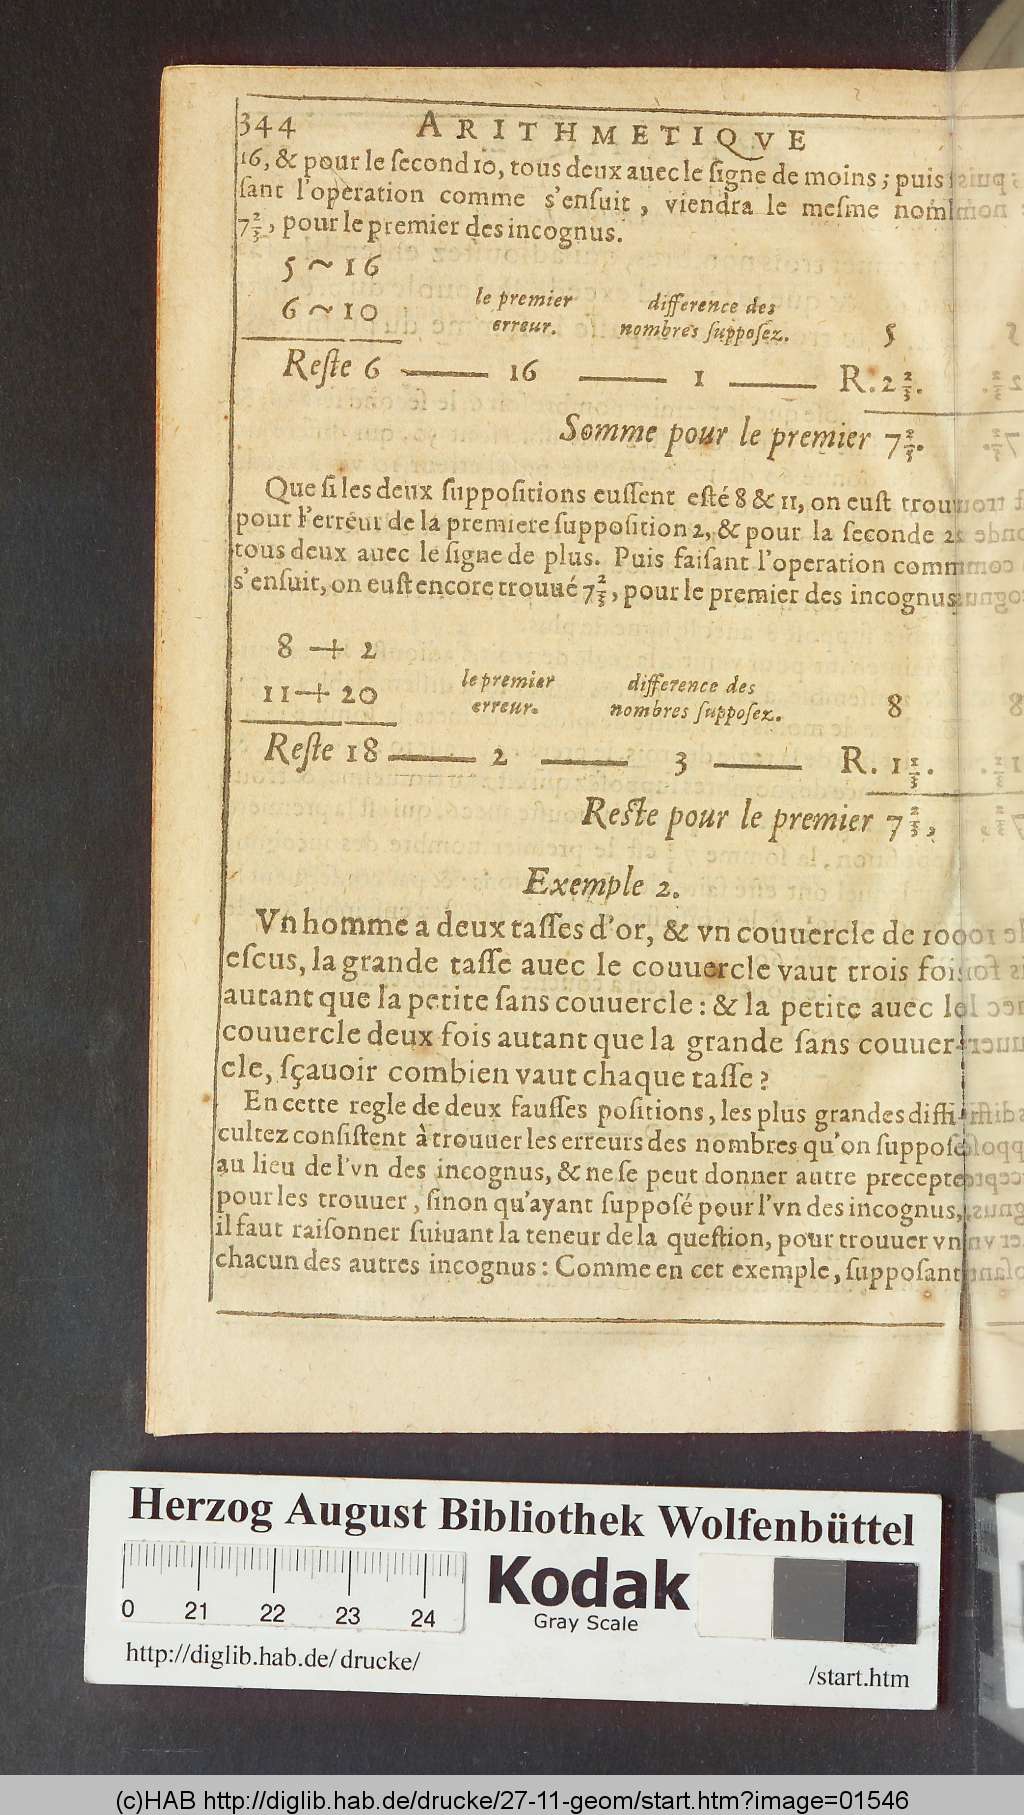 344 ARITHMETIQVE
16, & pour le ſecond 10, tous deux auec le ſigne de moins; puis
ſant l'operation comme s'enſuit, viendra le meſme nom
7 2/3, pour le premier des incognus.
5 ~ 16
6 ~ 10 le premier erreur. difference des nombres ſuppoſez. 5
Reſte 6 — 16 — 1 — R. 2 2/3.
Somme pour le premier 7 2/3.
Que ſi les deux ſuppoſitions euſſent eſté 8 & 11, on euſt trou
pour l'erreur de la premiere ſuppoſition 2, & pour la ſeconde 2
tous deux auec le ſigne de plus. Puis faiſant l'operation comm
s'enſuit, on euſt encore trouué 7 2/3, pour le premier des incognus
8 + 2
11 + 20 le premier erreur. difference des nombres ſuppoſez. 8
Reſte 18 — 2 — 3 — R. 1 1/3.
Reſte pour le premier 7 2/3,
Exemple 2.
Vn homme a deux taſſes d'or, & vn couuercle de 100
eſcus, la grande taſſe auec le couuercle vaut trois fois
autant que la petite ſans couuercle: & la petite auec le
couuercle deux fois autant que la grande ſans couuer-
cle, ſçauoir combien vaut chaque taſſe?
En cette regle de deux fauſſes poſitions, les plus grandes diffi-
cultez conſiſtent à trouuer les erreurs des nombres qu'on ſuppoſe
au lieu de l'vn des incognus, & ne ſe peut donner autre precepte
pour les trouuer, ſinon qu'ayant ſuppoſé pour l'vn des incognus,
il faut raiſonner ſuiuant la teneur de la queſtion, pour trouuer vn
chacun des autres incognus: Comme en cet exemple, ſuppoſant
Herzog August Bibliothek Wolfenbüttel
0 21 22 23 24
Kodak
Gray Scale
http://diglib.hab.de/drucke/ /start.htm
(c)HAB http://diglib.hab.de/drucke/27-11-geom/start.htm?image=01546